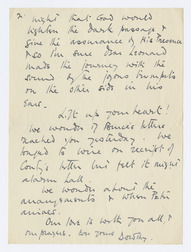 2 night that God would
lighten the dark passage &
give the assurance of His Presence
& so I'm sure Dear Leonard
made the journey with the
sound of the joyous trumpets
on the other side in his
ears.
Lift up your heart!
We wonder if letters
reached you yesterday We
longed to wire on receipt of
letter but felt it might
alarm all.
We wonder about the
arrangements & when
arrives.
Our love is with you all, &
our prayers. Dorothy.